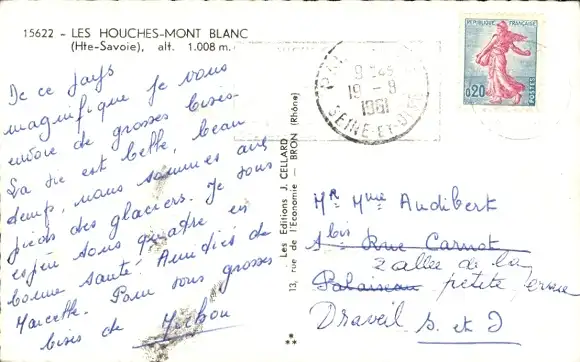 15622 - LES HOUCHES-MONT BLANC
(Hte-Savoie), alt. 1.008 m.
De ce pays
magnifique je vous
envoie de grosses bises.
La vie est belle, beau
temps, nous sommes aux
pieds des glaciers. Je vous
espère tous quatre en
bonne santé. Amitiés de
Marcelle. Pour tous grosses
bises de
Les Editions J. CELLARD
13, rue de l'Economie — BRON (Rhône)
**
REPUBLIQUE FRANÇAISE
0,20
POSTES
19 - 9
1961
SEINE-ET-OISE
Mr Mme Audibert
1 bis Rue Carnot
2 allée de la
Palaiseau petite
Draveil S. et O